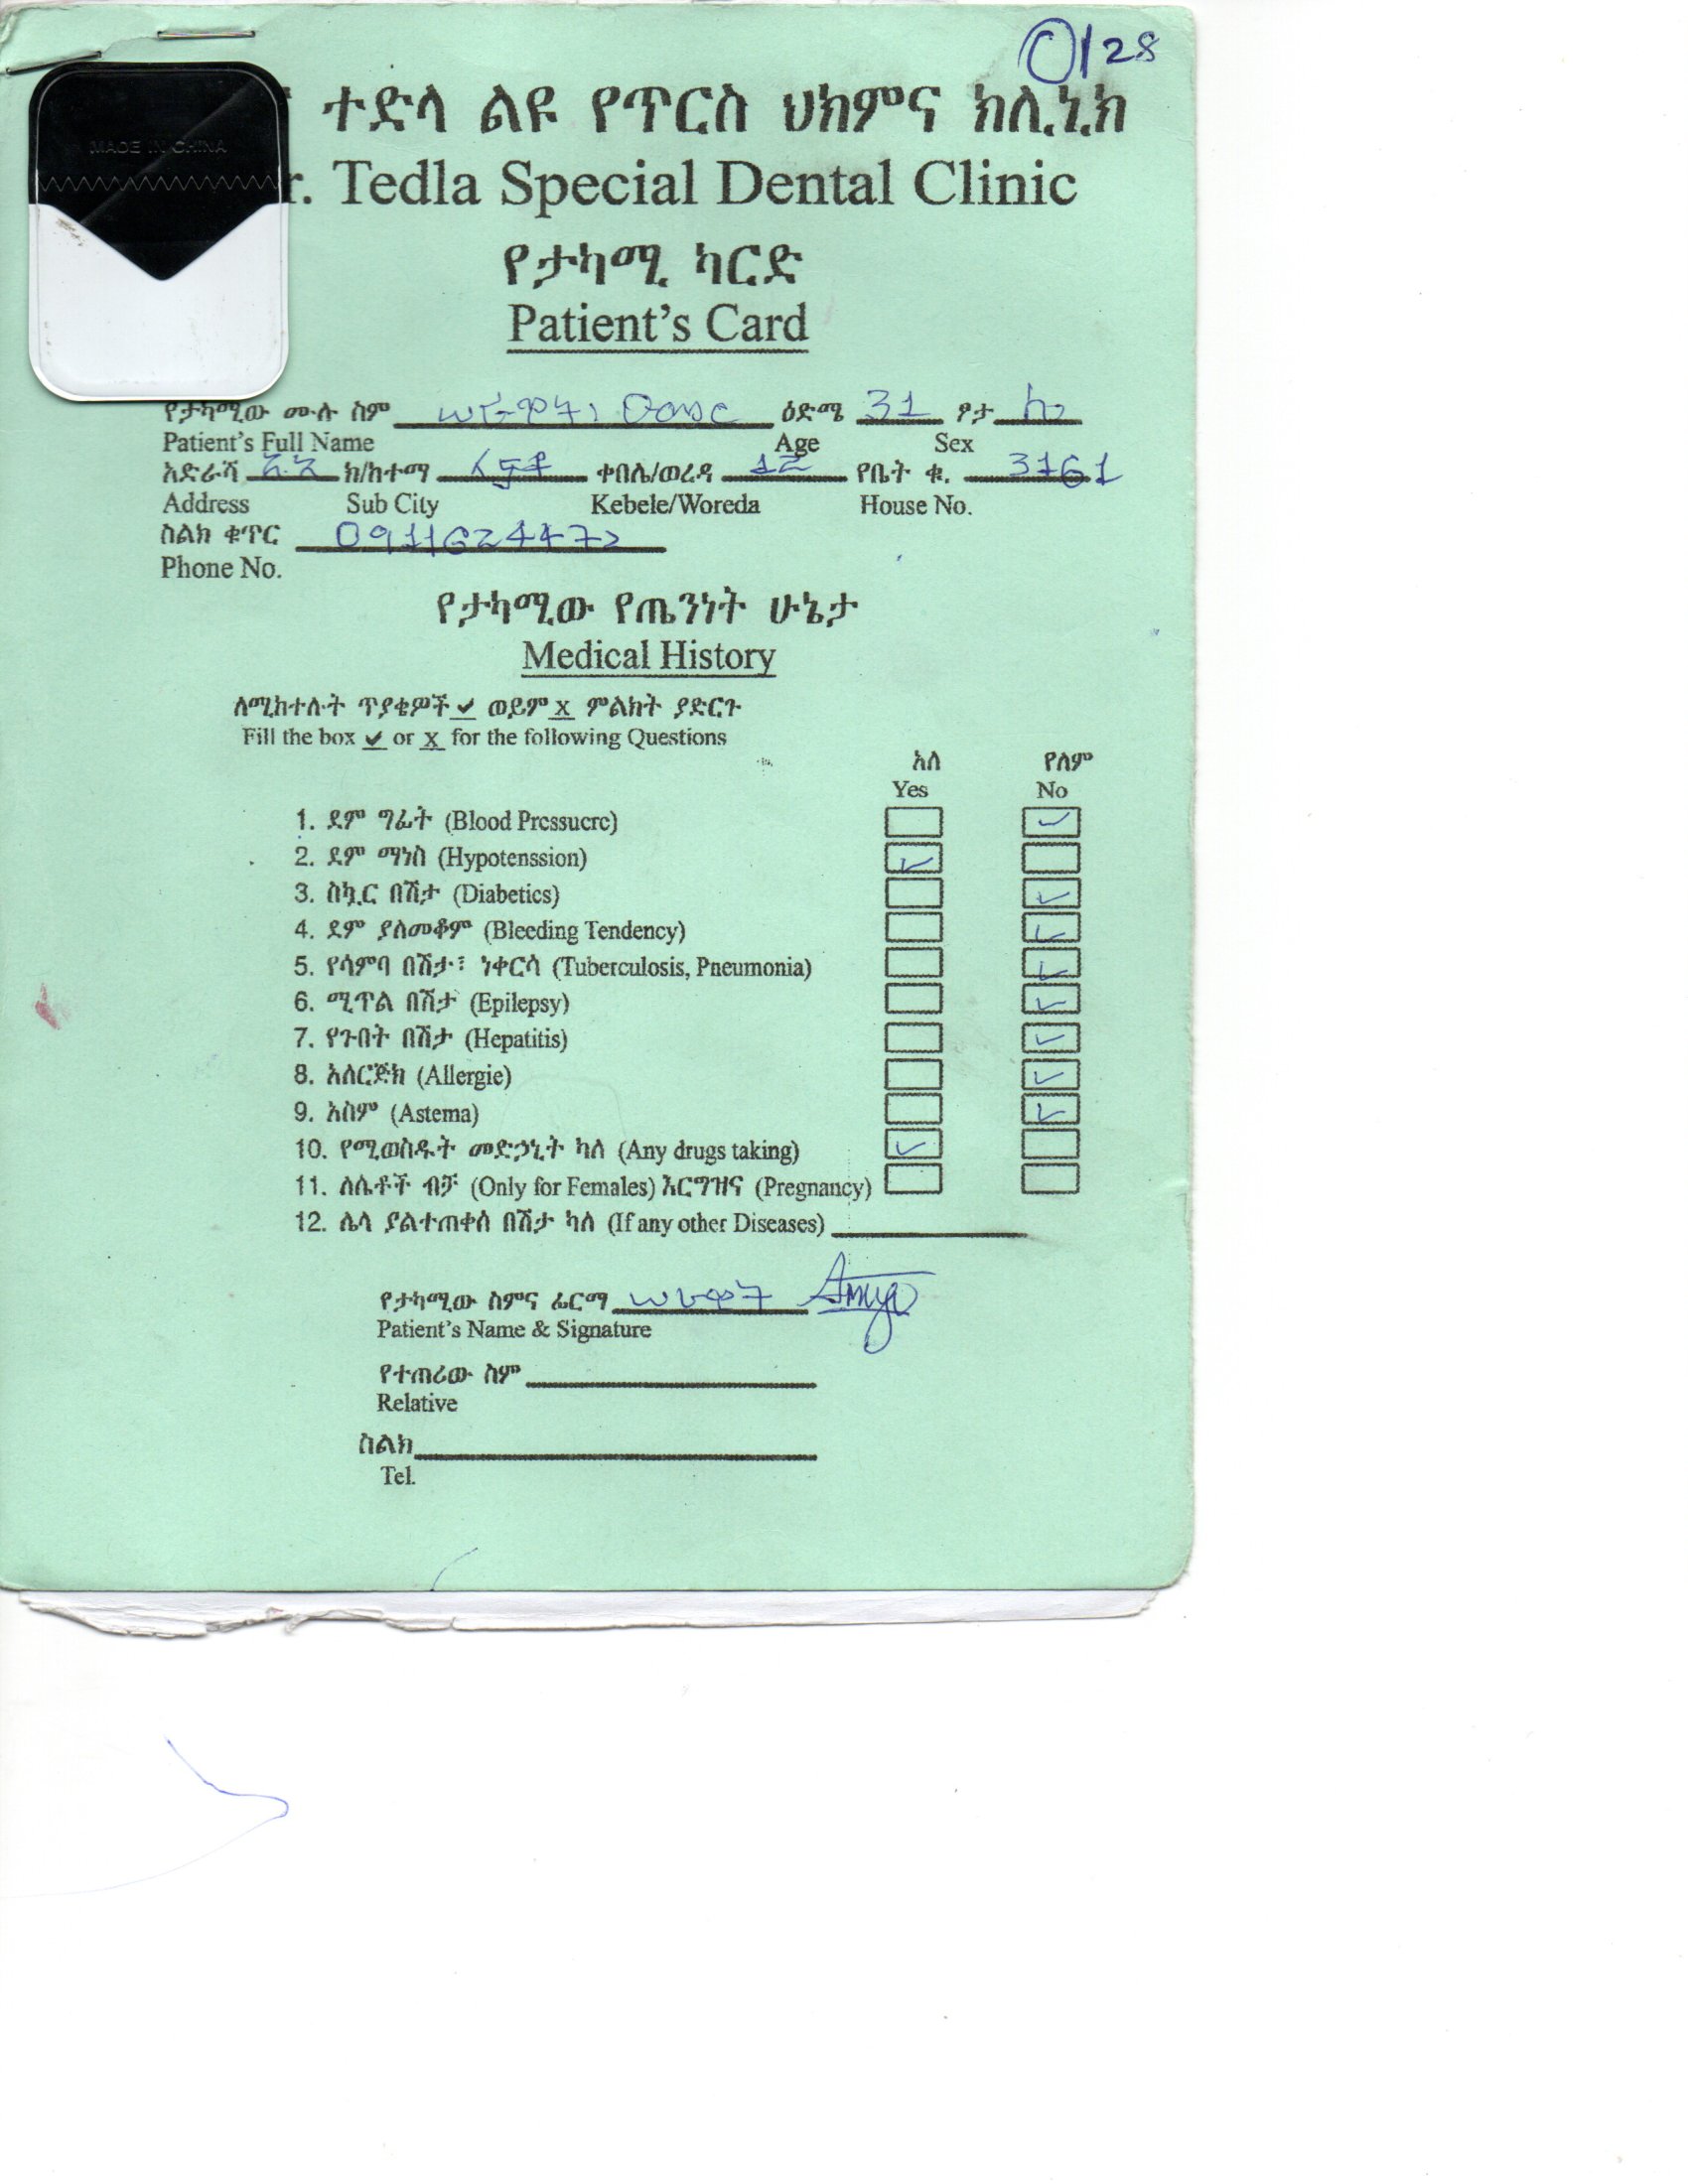 C/128
MADE IN CHINA
ተድላ ልዩ የጥርስ ህክምና ክሊኒክ
r. Tedla Special Dental Clinic
የታካሚ ካርድ
Patient's Card
የታካሚው ሙሉ ስም ዕድሜ 31 ፆታ
Patient's Full Name Age Sex
አድራሻ አ.አ ክ/ከተማ ቀበሌ/ወረዳ 12 የቤት ቁ. 3161
Address Sub City Kebele/Woreda House No.
ስልክ ቁጥር
Phone No.
የታካሚው የጤንነት ሁኔታ
Medical History
ለሚከተሉት ጥያቄዎች ✔ ወይም x ምልክት ያድርጉ
Fill the box ✔ or x for the following Questions
አለ የለም
Yes No
1. ደም ግፊት (Blood Pressucre) ✓
2. ደም ማነስ (Hypotenssion) ✓
3. ስኳር በሽታ (Diabetics) ✓
4. ደም ያለመቆም (Bleeding Tendency) ✓
5. የሳምባ በሽታ፣ ነቀርሳ (Tuberculosis, Pneumonia) ✓
6. ሚጥል በሽታ (Epilepsy) ✓
7. የጉበት በሽታ (Hepatitis) ✓
8. አለርጅክ (Allergie) ✓
9. አስም (Astema) ✓
10. የሚወስዱት መድኃኒት ካለ (Any drugs taking) ✓
11. ለሴቶች ብቻ (Only for Females) እርግዝና (Pregnancy)
12. ሌላ ያልተጠቀሰ በሽታ ካለ (If any other Diseases)
የታካሚው ስምና ፊርማ
Patient's Name & Signature
የተጠሪው ስም
Relative
ስልክ
Tel.